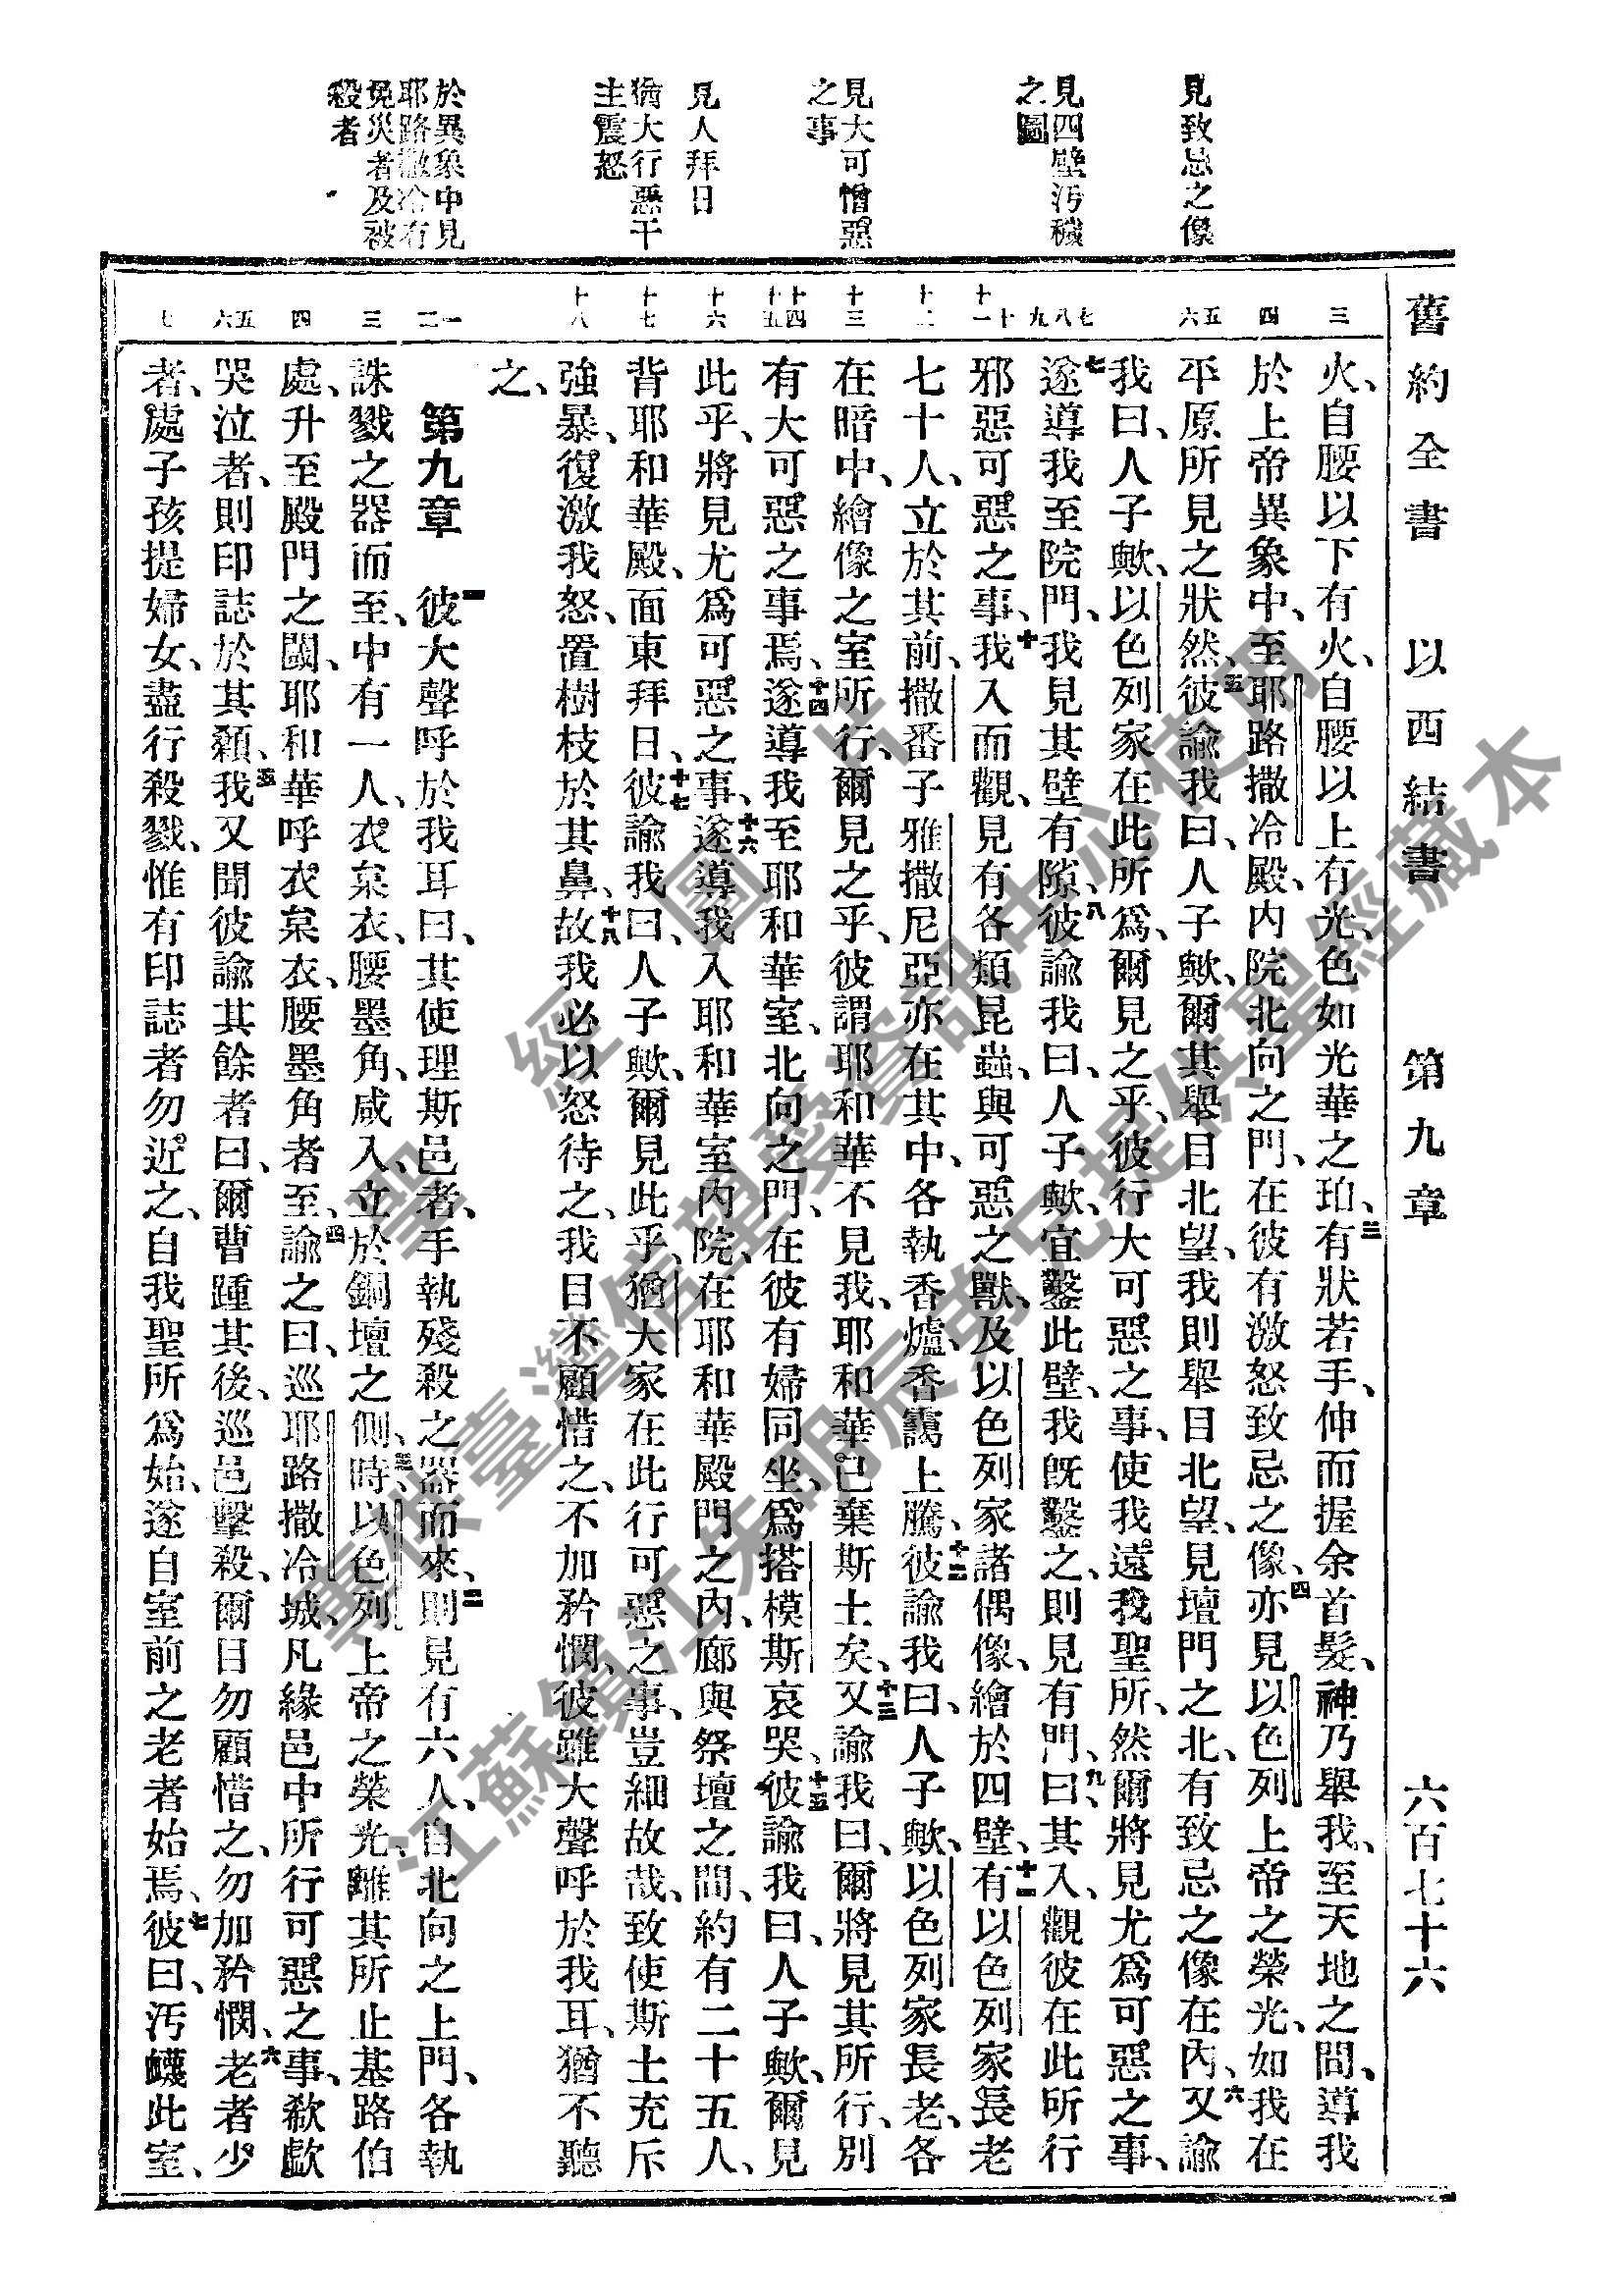 舊約全書 以西結書 第九章 六百七十六
見致忌之像
見四壁污穢
之圖
見大可憎惡
之事
見人拜日
猶大行惡干
主震怒
於異象中見
耶路撒冷有
免災者及被
殺者
三
四
五六
七八九
十十一
十二
十三
十四十五
十六
十七
十八
一二
三
四
五六
七
火、自腰以下有火、自腰以上有光、色如光華之珀、三有狀若手、伸而握余首髮、神乃舉我、至天地之間、導我
於上帝異象中、至耶路撒冷殿、內院北向之門、在彼有激怒致忌之像、四亦見以色列上帝之榮光、如我在
平原所見之狀然、五彼諭我曰、人子歟、爾其舉目北望、我則舉目北望、見壇門之北、有致忌之像在內、六又諭
我曰、人子歟、以色列家在此所爲、爾見之乎、彼行大可惡之事、使我遠我聖所、然爾將見尤爲可惡之事、
七遂導我至院門、我見其壁有隙、八彼諭我曰、人子歟、宜鑿此壁、我既鑿之、則見有門、九曰、其入、觀彼在此所行
邪惡可惡之事、十我入而觀、見有各類昆蟲、與可惡之獸、及以色列家諸偶像、繪於四壁、十一有以色列家長老
七十人、立於其前、撒番子雅撒尼亞亦在其中、各執香爐、香靄上騰、十二彼諭我曰、人子歟、以色列家長老、各
在暗中、繪像之室所行、爾見之乎、彼謂耶和華不見我、耶和華已棄斯土矣、十三又諭我曰、爾將見其所行、別
有大可惡之事焉、十四遂導我至耶和華室、北向之門、在彼有婦同坐、爲搭模斯哀哭、十五彼諭我曰、人子歟、爾見
此乎、將見尤爲可惡之事、十六遂導我入耶和華室內院、在耶和華殿門之內、廊與祭壇之間、約有二十五人、
背耶和華殿、面東拜日、十七彼諭我曰、人子歟、爾見此乎、猶大家在此行可惡之事、豈細故哉、致使斯土充斥
強暴、復激我怒、置樹枝於其鼻、十八故我必以怒待之、我目不顧惜之、不加矜憫、彼雖大聲呼於我耳、猶不聽
之、
第九章 一彼大聲呼於我耳曰、其使理斯邑者、手執殘殺之器而來、二則見有六人、自北向之上門、各執
誅戮之器而至、中有一人、衣枲衣、腰墨角、咸入、立於銅壇之側、三時、以色列上帝之榮光、離其所止基路伯
處、升至殿門之閾、耶和華呼衣枲衣、腰墨角者至、四諭之曰、巡耶路撒冷城、凡緣邑中所行可惡之事、欷歔
哭泣者、則印誌於其顙、五我又聞彼諭其餘者曰、爾曹踵其後、巡邑擊殺、爾目勿顧惜之、勿加矜憫、六老者少
者、處子孩提婦女、盡行殺戮、惟有印誌者勿近之、自我聖所爲始、遂自室前之老者始焉、七彼曰、污衊此室、
聖經圖片
專供臺灣信望愛資訊中心使用
江蘇鎮江朱明辰弟兄提供聖經藏本